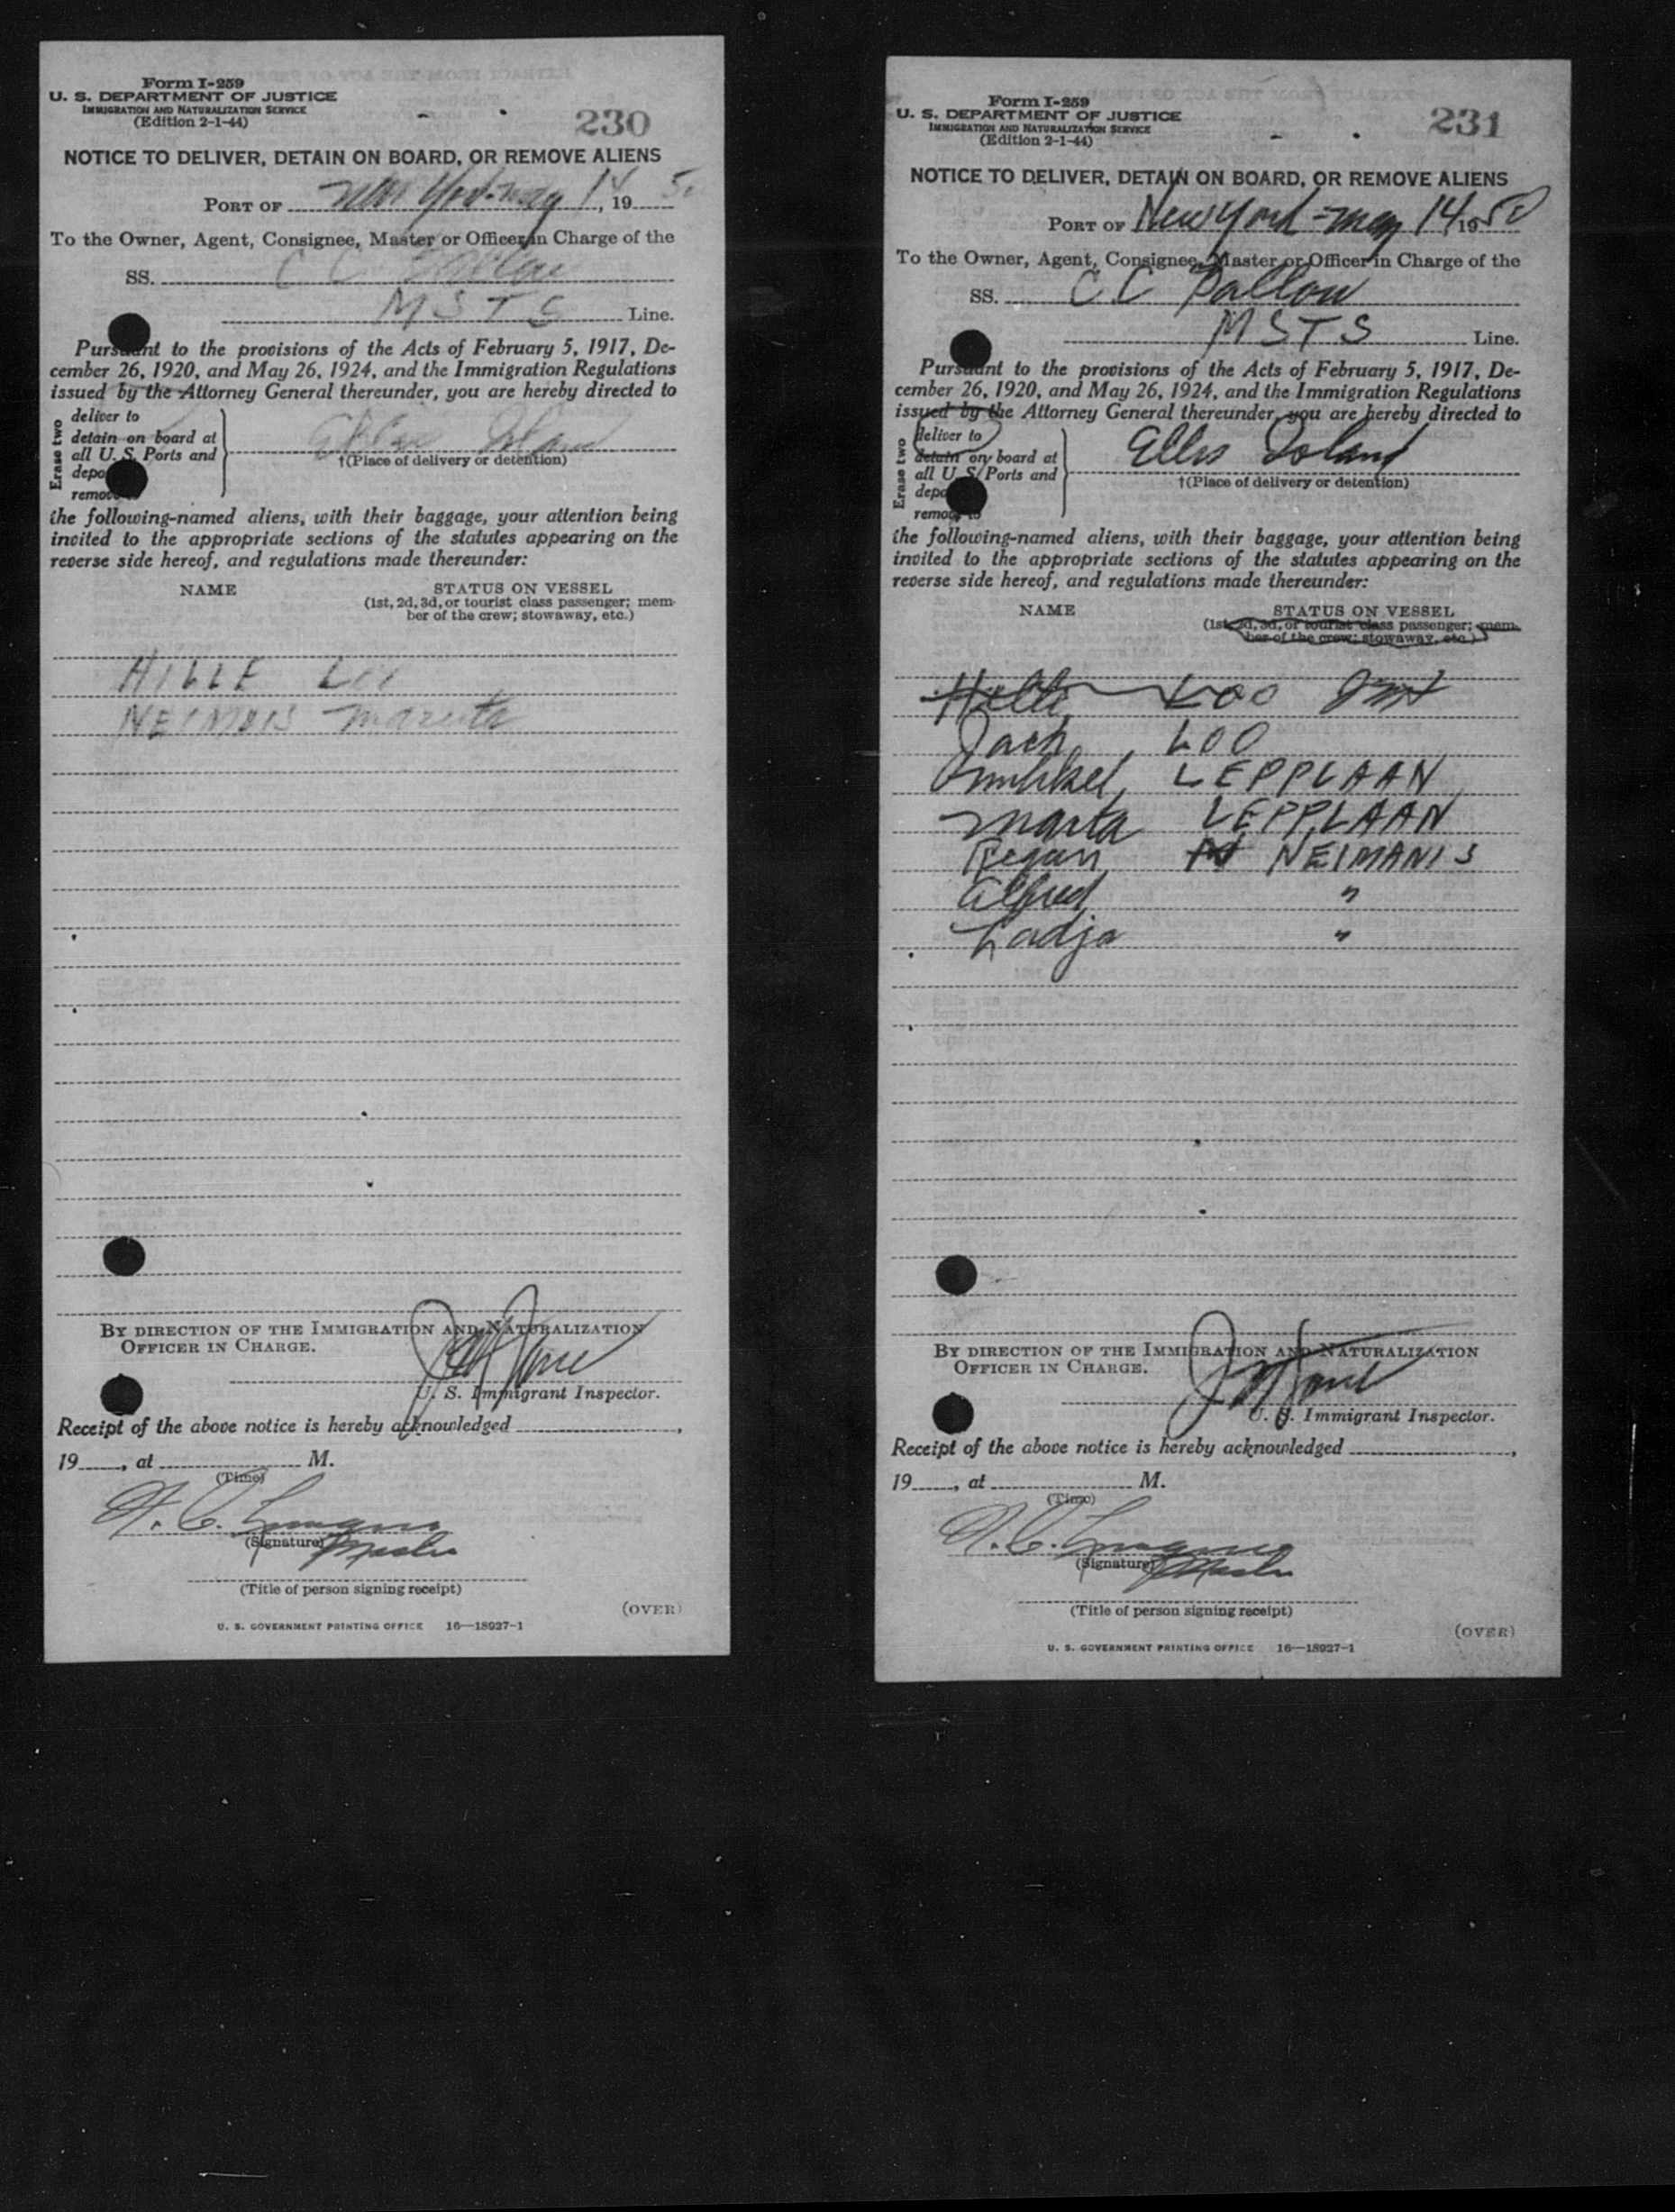 Form I-259
U. S. DEPARTMENT OF JUSTICE
IMMIGRATION AND NATURALIZATION SERVICE
(Edition 2-1-44)
230
NOTICE TO DELIVER, DETAIN ON BOARD, OR REMOVE ALIENS
PORT OF New York - May 14, 19 5
To the Owner, Agent, Consignee, Master or Officer in Charge of the
SS. C C Ballou
MSTS Line.
Pursuant to the provisions of the Acts of February 5, 1917, De-
cember 26, 1920, and May 26, 1924, and the Immigration Regulations
issued by the Attorney General thereunder, you are hereby directed to
Erase two
deliver to
detain on board at
all U. S. Ports and
depo
remove to
Ellis Island
†(Place of delivery or detention)
the following-named aliens, with their baggage, your attention being
invited to the appropriate sections of the statutes appearing on the
reverse side hereof, and regulations made thereunder:
NAME STATUS ON VESSEL
(1st, 2d, 3d, or tourist class passenger; mem-
ber of the crew; stowaway, etc.)
HILLE
NEIMANIS
BY DIRECTION OF THE IMMIGRATION AND NATURALIZATION
OFFICER IN CHARGE.
U. S. Immigrant Inspector.
Receipt of the above notice is hereby acknowledged ,
19 , at M.
(Time)
(Signature)
Master
(Title of person signing receipt)
(OVER)
U. S. GOVERNMENT PRINTING OFFICE 16—18927-1
Form I-259
U. S. DEPARTMENT OF JUSTICE
IMMIGRATION AND NATURALIZATION SERVICE
(Edition 2-1-44)
231
NOTICE TO DELIVER, DETAIN ON BOARD, OR REMOVE ALIENS
PORT OF New York - May 14 1950
To the Owner, Agent, Consignee, Master or Officer in Charge of the
SS. C C Ballou
MSTS Line.
Pursuant to the provisions of the Acts of February 5, 1917, De-
cember 26, 1920, and May 26, 1924, and the Immigration Regulations
issued by the Attorney General thereunder, you are hereby directed to
Erase two
deliver to
detain on board at
all U. S. Ports and
depo
remove to
Ellis Island
†(Place of delivery or detention)
the following-named aliens, with their baggage, your attention being
invited to the appropriate sections of the statutes appearing on the
reverse side hereof, and regulations made thereunder:
NAME STATUS ON VESSEL
(1st, 2d, 3d, or tourist class passenger; mem-
ber of the crew; stowaway, etc.)
Hille LOO
LOO
LEPPLAAN
Marta LEPPLAAN
NEIMANIS
Alfred "
"
BY DIRECTION OF THE IMMIGRATION AND NATURALIZATION
OFFICER IN CHARGE.
U. S. Immigrant Inspector.
Receipt of the above notice is hereby acknowledged ,
19 , at M.
(Time)
(Signature)
Master
(Title of person signing receipt)
(OVER)
U. S. GOVERNMENT PRINTING OFFICE 16—18927-1